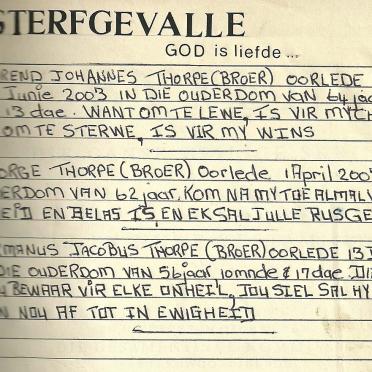 STERFGEVALLE
GOD is liefde...
REND JOHANNES THORPE (BROER) OORLEDE
JUNIE 2003 IN DIE OUDERDOM VAN 64 jaa
13 dae. WANT OM TE LEWE, IS VIR MY CH
OM TE STERWE, IS VIR MY WINS
ORGE THORPE (BROER) Oorlede 1 April 200
ERDOM VAN 62 jaar. KOM NA MY TOE ALMAL V
EID EN BELAS IS, EN EK SAL JULLE RUSGE
RMANUS JACOBUS THORPE (BROER) OORLEDE 13 J
DIE OUDERDOM VAN 56 jaar 10 mnde & 17 dae. DIE
BEWAAR VIR ELKE ONHEIL, JOU SIEL SAL HY
N NOU AF TOT IN EWIGHEID